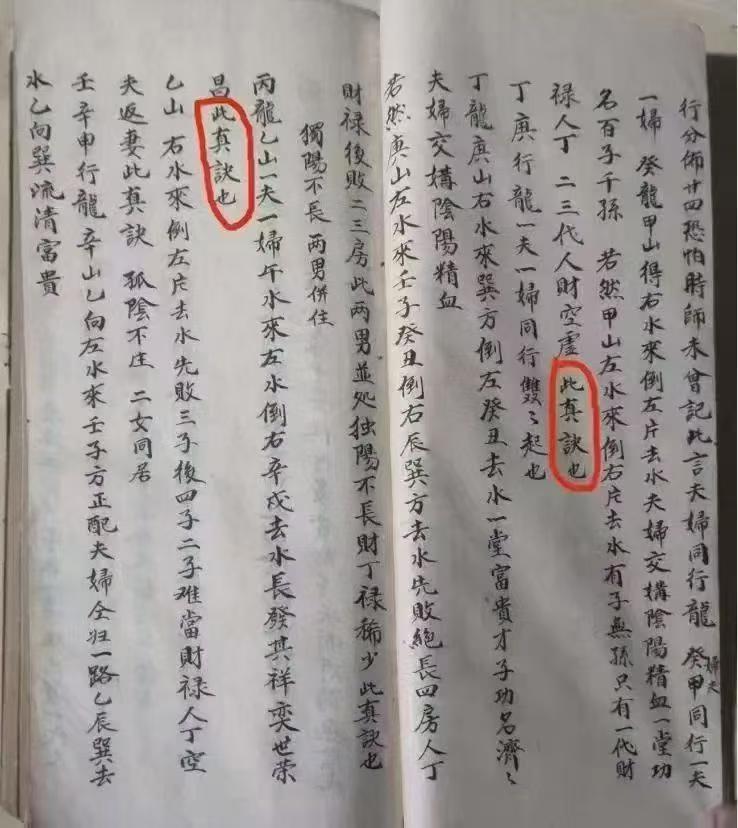 行分佈廿四恐怕時師未曾記此言夫婦同行龍 癸甲同行一夫
婦夫
一婦 癸龍甲山得右水來倒左片去水夫婦交媾陰陽精血一堂功
名百子千孫 若然甲山左水來倒右片去水有子無孫只有一代財
禄人丁 二三代人財空虛此真訣也
丁庚行龍一夫一婦同行雙〻起也
丁龍庚山右水來巽方倒左癸丑去水一堂富貴才子功名濟〻
夫婦交媾陰陽精血
若然庚山左水來壬子癸丑倒右辰巽方去水先敗絕長四房人丁
財禄後敗二三房此两男並处独陽不長財丁禄稀少此真訣也
獨陽不長 两男併住
丙龍乙山一夫一婦午水來左水倒右辛戌去水長發其祥奕世荣
昌此真訣也
乙山 右水來倒左片去水先敗三子後四子二子难當財禄人丁空
夫返妻此真訣 孤陰不生 二女同居
壬辛申行龍辛山乙向左水來壬子方正配夫婦仝归一路乙辰巽去
水乙向巽流清富貴